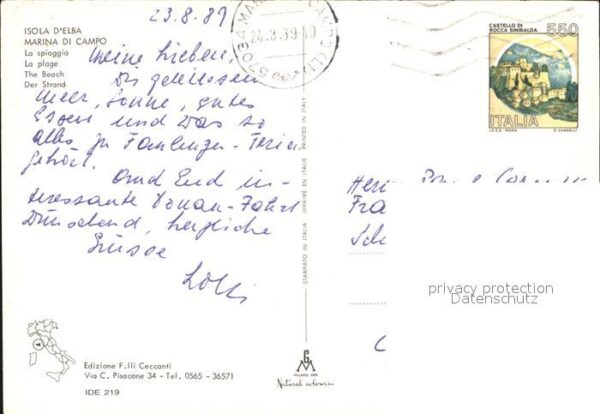 23.8.89
ISOLA D'ELBA
MARINA DI CAMPO
La spiaggia
La plage
The Beach
Der Strand
Meine Lieben,
Wir geniessen
Meer, Sonne, gutes
Essen und was so
alles zu Faulenzer-Ferien
gehört.
Und Euch in-
teressante Donau-Fahrt
wünschend, herzliche
Grüsse
Lolli
57034 MARINA CAMPO (LI)
24.8.89
CASTELLO DI
ROCCA SINIBALDA
550
ITALIA
I.P.Z.S. ROMA
STAMPATO IN ITALIA IMPRIMÉ EN ITALIE PRINTED IN ITALY
privacy protection
Datenschutz
Edizione F.lli Ceccanti
Via C. Pisacane 34 - Tel. 0565 - 36571
IDE 219
Natural colours